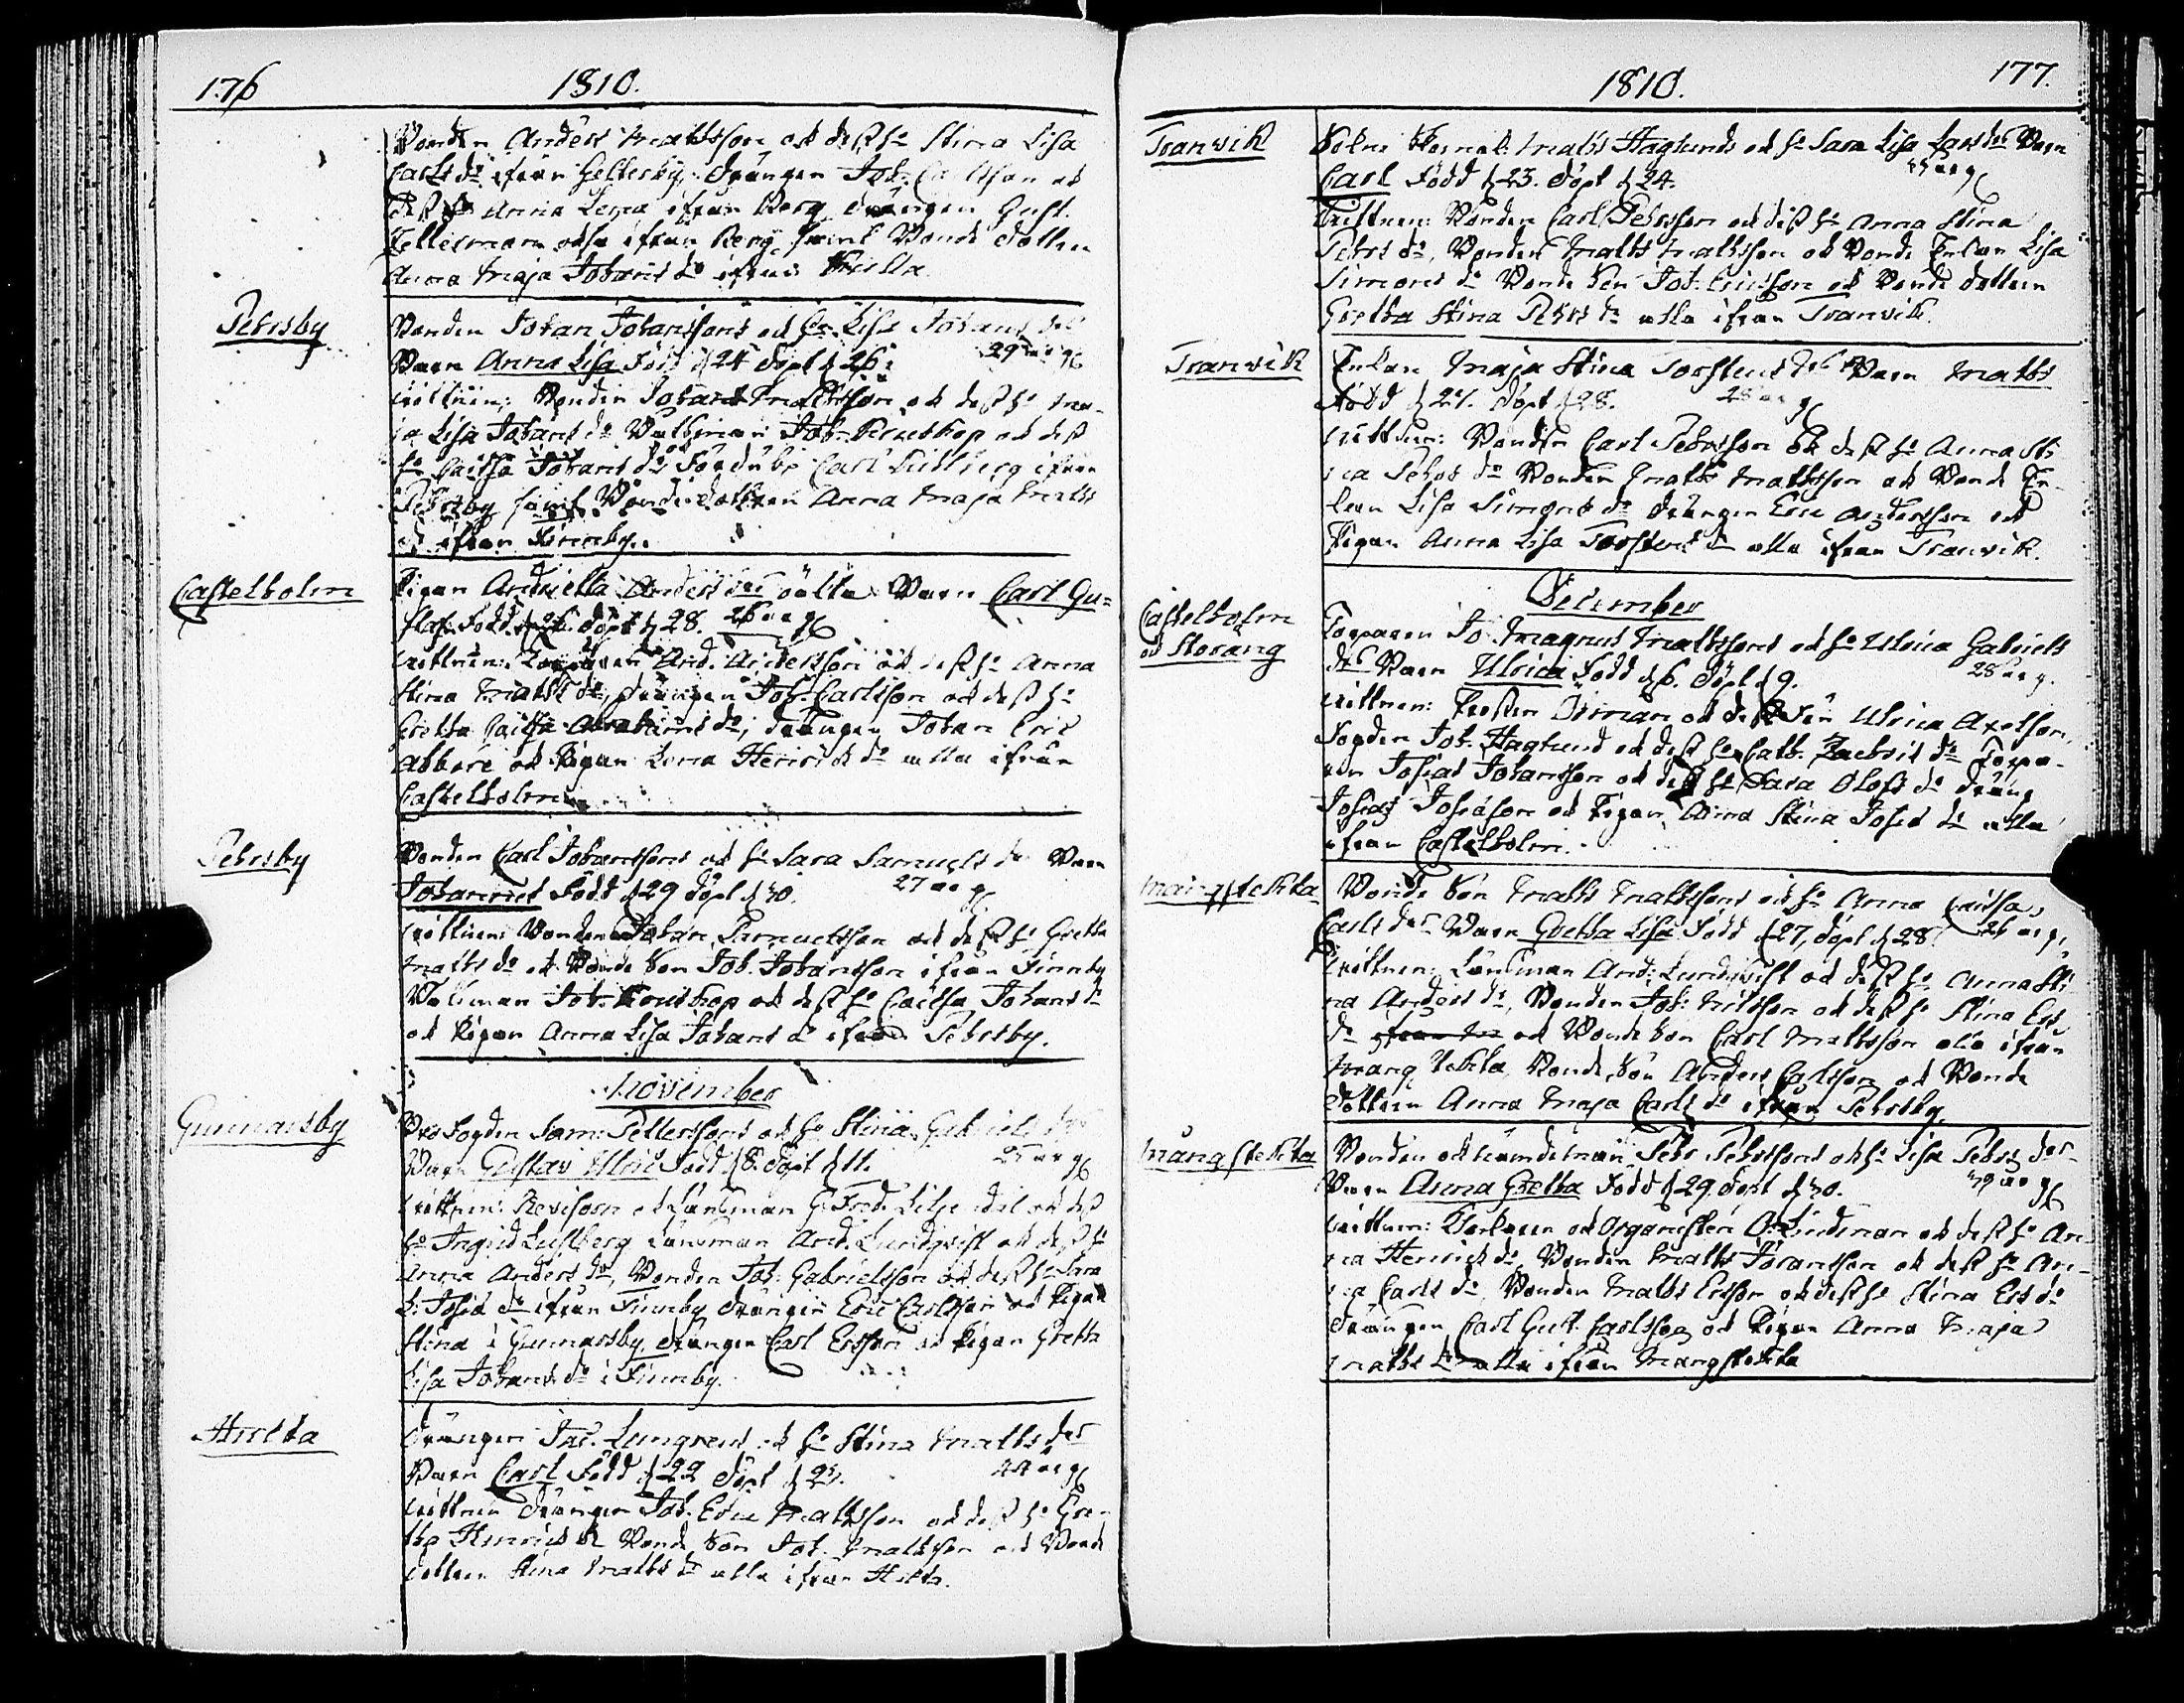 176
1810.
Bonden Anders Mattsson ock dess h:u Stina Lisa
Carls d:r ifrån Gelterby, Drängen Joh: Carlsson ock
dess h:u Anna Lena ifrån Berg Drängen Gust.
ifrån Berg samt Bonde dottren
Anna Maja Johans d:r ifrån
Pehrsby
Bonden Johan Johanssons ock h:u Lisa Johans d:rs
Barn Anna Lisa Född d 24 döpt d 26. 29 år g
Wittnen: Bonden Johan Mattsson ock dess h:u Ma-
ja Lisa Johans d:r Båtsman Joh: ock dess
h:u Caisa Johans d:r Carl ifrån
Pehrsby samt Bonde dottren Anna Maja Matts
d:r ifrån Finnby.
Castelholm
Pigan Andrietta Anders d:rs oäkta Barn Carl Gu-
staf Född d 26 döpt d 28. 26 år g
Wittnen: And. Andersson ock dess h:u Anna
Stina Matts d:r, Drängen Joh: Carlsson ock dess h:u
Greta Caisa Abrahams d:r, Drängen Johan Eric
ock Pigan Lena Henricks d:r alla ifrån
Castelholm
Pehrsby
Bonden Carl Johanssons ock h:u Sara Samuels d:rs Barn
Johannes Född d 29 döpt d 30. 27 år g
Wittnen: Bonden Johan Samuelsson ock dess h:u Gretha
Matts d:r ock Bonde Son Joh. Johansson ifrån Finnby
Båtsman Joh: ock dess h:u Caisa Johans d:r
ock Pigan Anna Lisa Johans d:r ifrån Pehrsby.
November
Gunnarsby
Sam: Petterssons ock h:u Stina Gabriels d:rs
Barn Gustav Ulric Född d 8. döpt d 11. år g
Wittnen: ock Länsman G: Fred: ock dess
h:u Ingrid Länsman And. Lundqvist ock dess h:u
Anna Anders d:r, Bonden Joh: Gabrielsson ock dess h:u Sara
L: Josia d:r ifrån Finnby Drängen Eric Carlsson ock Pigan
Stina i Gunnarsby Drängen Carl Ersson ock Pigan Gretta
Lisa Johans d:r i Finnby.
Hrolta
Drängen Jac. Lungrens ock h:u Stina Matts d:rs
Barn Carl Född d 22 döpt d 25. 44 år g
Wittnen Drängen Joh. Eric Mattsson ock dess h:u Gre-
tha Henrics d:r Bonde Son Joh. Mattsson ock Bonde
dottren Stina Matts d:r alla ifrån
177.
1810.
Tranvik
Matts Haglunds ock h:u Sara Lisa Lars d:rs Barn
Carl Född d 23. döpt d 24. 33 år g
Wittnen: Bonden Carl Pehrsson ock dess h:u Anna Stina
Pehrs d:r, Bonden Matts Mattsson ock Bonde Enkan Lisa
Simons d:r Bonde Son Joh: Ericsson ock Bonde dottren
Gretha Stina Pehrs d:r alla ifrån Tranvik.
Tranvik
Enkan Maja Stina Torstens d:rs Barn Matts
Född d 27. döpt d 28. 28 år g
Wittnen: Bonden Carl Pehrsson ock dess h:u Anna Sti
na Pehrs d:r Bonden Matts Mattsson ock Bonde En-
kan Lisa Simons d:r Drängen Eric Andersson ock
Pigan Anna Lisa Torstens d:r alla ifrån Tranvik.
December
Castelholm
ock Storäng
Torparen Jo: Magnus Mattssons ock h:u Ulrica Gabriels
d:rs Barn Ulrica Född d 6. döpt d 9. 28 år g.
Wittnen: Öjman ock dess Ulrica Axelson,
Fogden Joh. Haglund ock dess h:u Cath. d:r Torpa-
ren Josias Johansson ock dess h:u Sara Olofs d:r Dräng
Josias Josiason ock Pigan Anna Stina Josia d:r alla
ifrån Castelholm.
Mångstekta
Bonde Son Matts Mattssons ock h:u Anna Caisa,
Carls d:rs Barn Gretha Lisa Född d 27, döpt d 28. 26 år g.
Wittnen: Länsman And: Lundqvist ock dess h:u Anna Sti
na Anders d:r, Bonden Joh: Nilsson ock dess h:u Stina Ers
d:r ifrån M ock Bonde Son Carl Mattsson alla ifrån
Mångstekta, Bonde Son Anders Carlsson ock Bonde
dottren Anna Maja Carls d:r ifrån Pehrsby.
Mångstekta
Bonden ock Nämdeman Pehr Pehrssons ock h:u Lisa Pehrs d:rs
Barn Anna Gretta Född d 29. döpt d 30. 39 år g
Wittnen: Klockaren ock Organisten A. Lindeman ock dess h:u An-
na Henricks d:r, Bonden Matts Johansson ock dess h:u An-
na Carls d:r, Bonden Matts Ersson ock dess h:u Stina Ers d:r
Drängen Carl Gust. Carlsson ock Pigan Anna Maja
Matts d:r alla ifrån Mångstekta